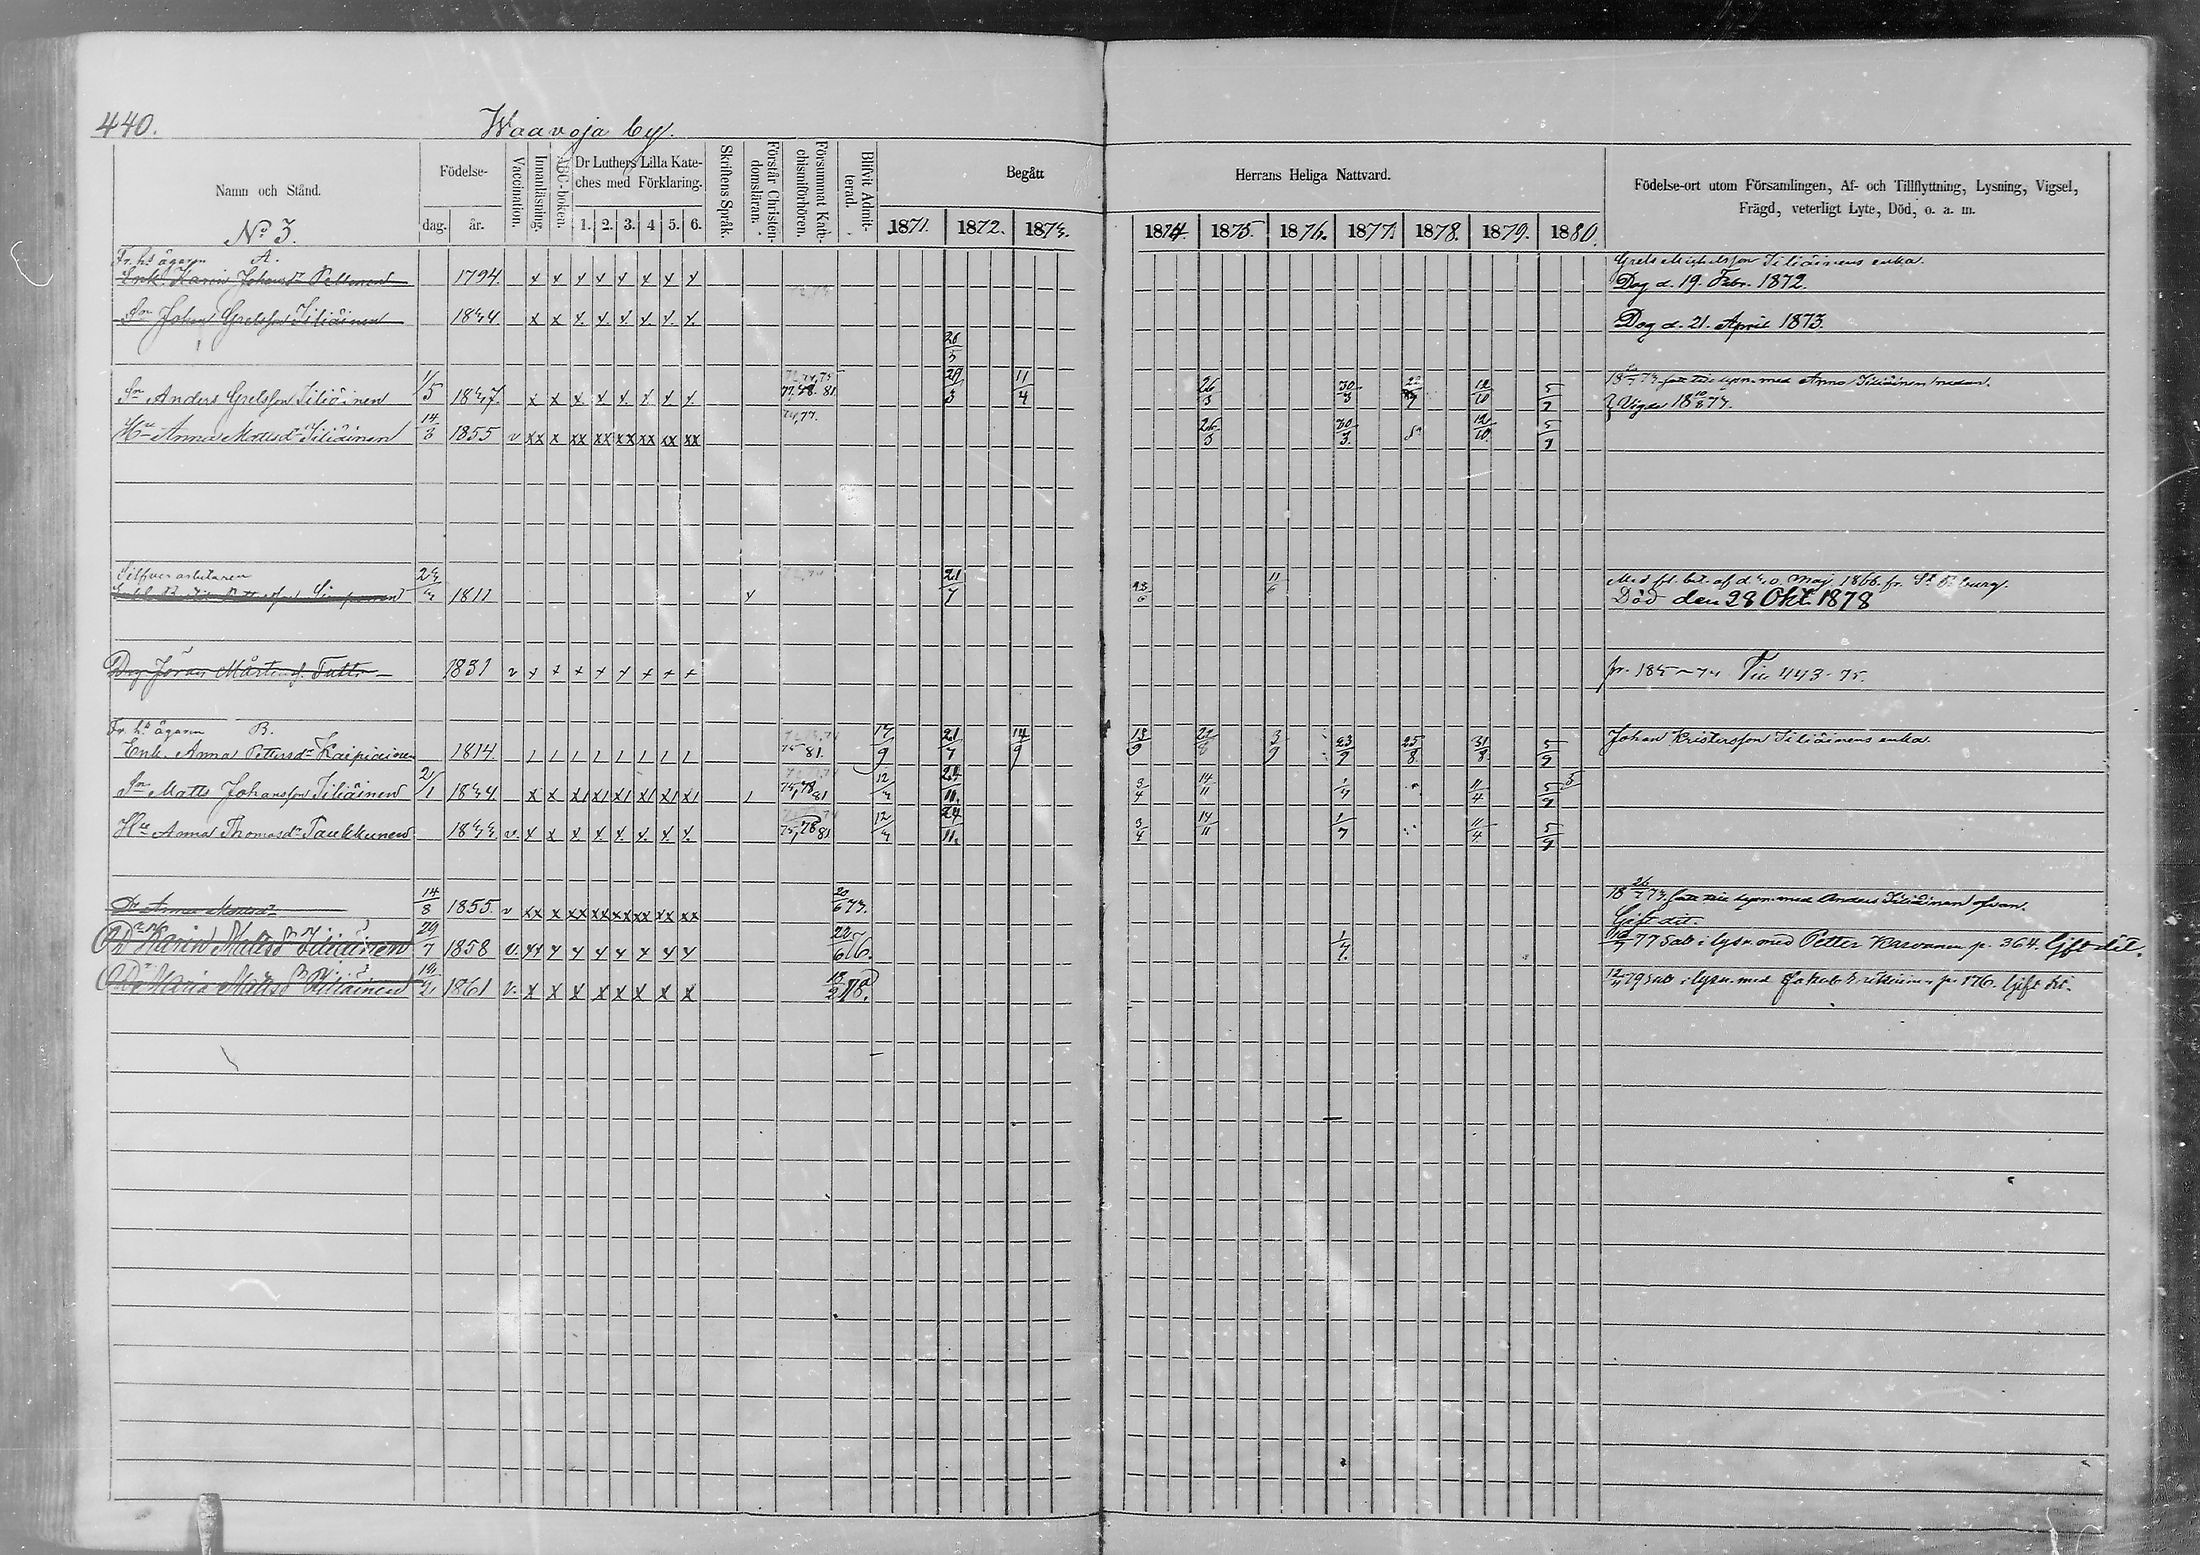 440.
Waavoja by.
Namn och Stånd.
Födelse-
dag.
år.
Vaccination.
Innanläsning.
ABC-boken.
Dr Luthers Lilla Kate-
ches med Förklaring.
1. 2. 3. 4 5. 6.
Skriftens Språk.
Förstår Christen-
domsläran.
Försummat Kate-
chismiförhören.
Blifvit Admit-
terad.
Begått
Herrans Heliga Nattvard.
1871. 1872. 1873.
1874. 1875. 1876. 1877. 1878. 1879. 1880.
Födelse-ort utom Församlingen, Af- och Tillflyttning, Lysning, Vigsel,
Frägd, veterligt Lyte, Död, o. a. m.
No 3.
Fr. hs ägaren A.
Enk. Karin Johansdr Peltonen 1794. x x x x x x x x
Grels Michelsson Siliäinens enka.
Dog d. 19. Febr. 1872.
Sn Johan Grelsson Siliäinen 1834 x x x. x. x. x. x. x.
Dog d. 21. April 1873.
26/5
Sn Anders Grelsson Siliäinen 1/5 1837. x x x. x. x. x. x. x. 29/3 11/4 26/3 30/3 12/10 5/9
med Anna Siliäinen nedan.
Hu Anna Mattsdr Siliäinen 14/8 1855 v xx x xx xx xx xx xx xx 74,77. 26/3 30/3. 12/10. 5/9
Silfverarbetaren
1811 x 21/7 11/6
Maj 1866. fr. St Pburg.
Död den 28 Okt. 1878
Drg Jöran Mårtens. Tatti 1831 v x x x x x x x x
Till 443-75.
Fr. hs ägaren B.
Enk. Anna Pettersdr Kaipiainen 1814. / / / / / / / / 75 81. 14/9 21/7 14/9 13/9 3/9 23/9 25/8 31/8. 5/9
Johan Kristersson Siliäinens enka.
Sn Matts Johansson Siliäinen 21/1 1834 x x x/ x/ x/ x/ x/ x/ / 75,78 81 24/11. 3/4 14/11 1/7 11/4 5/9
Hu Anna Thomasdr Taukkunen v. x x x. x. x. x. x. x. 75,78 81 24/11. 3/4 14/11 1/7 11/4. 5/9
Dr Anna Mattsdr 14/8 1855. v xx x xx xx xx xx xx xx 20/6 73.
med Anders Siliäinen ofvan.
Gift dit.
Dr Karin Mattsdr Siliäinen 29/7 1858 v. xx x x x x x x x 22/6 76. 1/7.
77 i lysn. med Petter p. 364. Gift dit.
Dr Maria Mattsdr Siliäinen 1861 v. x x x x x x x x 78.
79 i lysn. med Jakob p. 176. Gift dit.